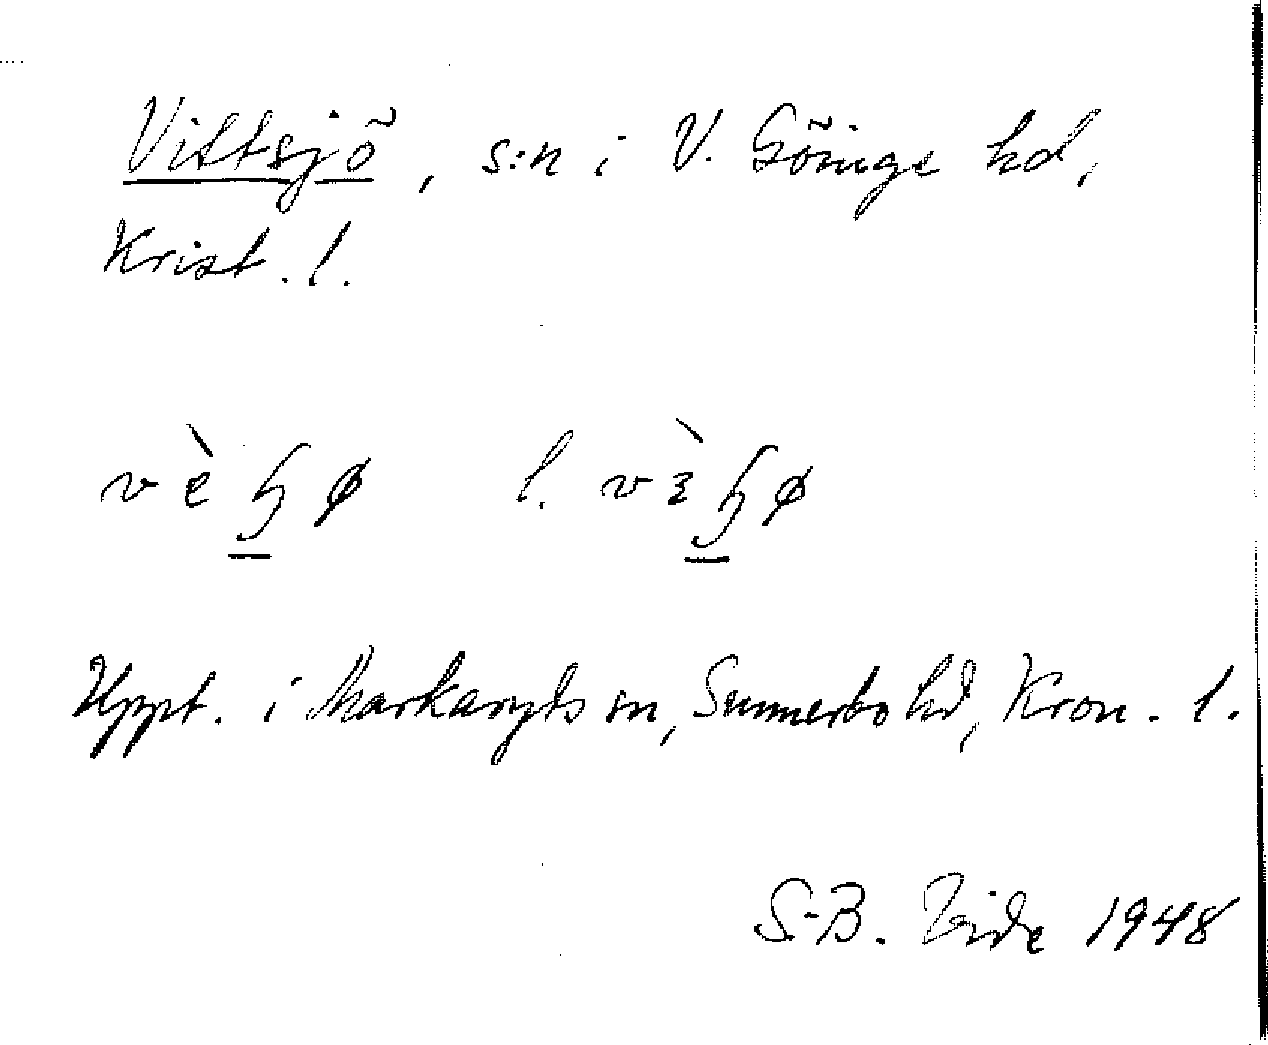 Vittsjö, s:n i V. Göinge hd,
Krist. l.
l.
Uppt. i Markaryds sn, Sunnerbo hd, Kron. l.
S-B. Vide 1948